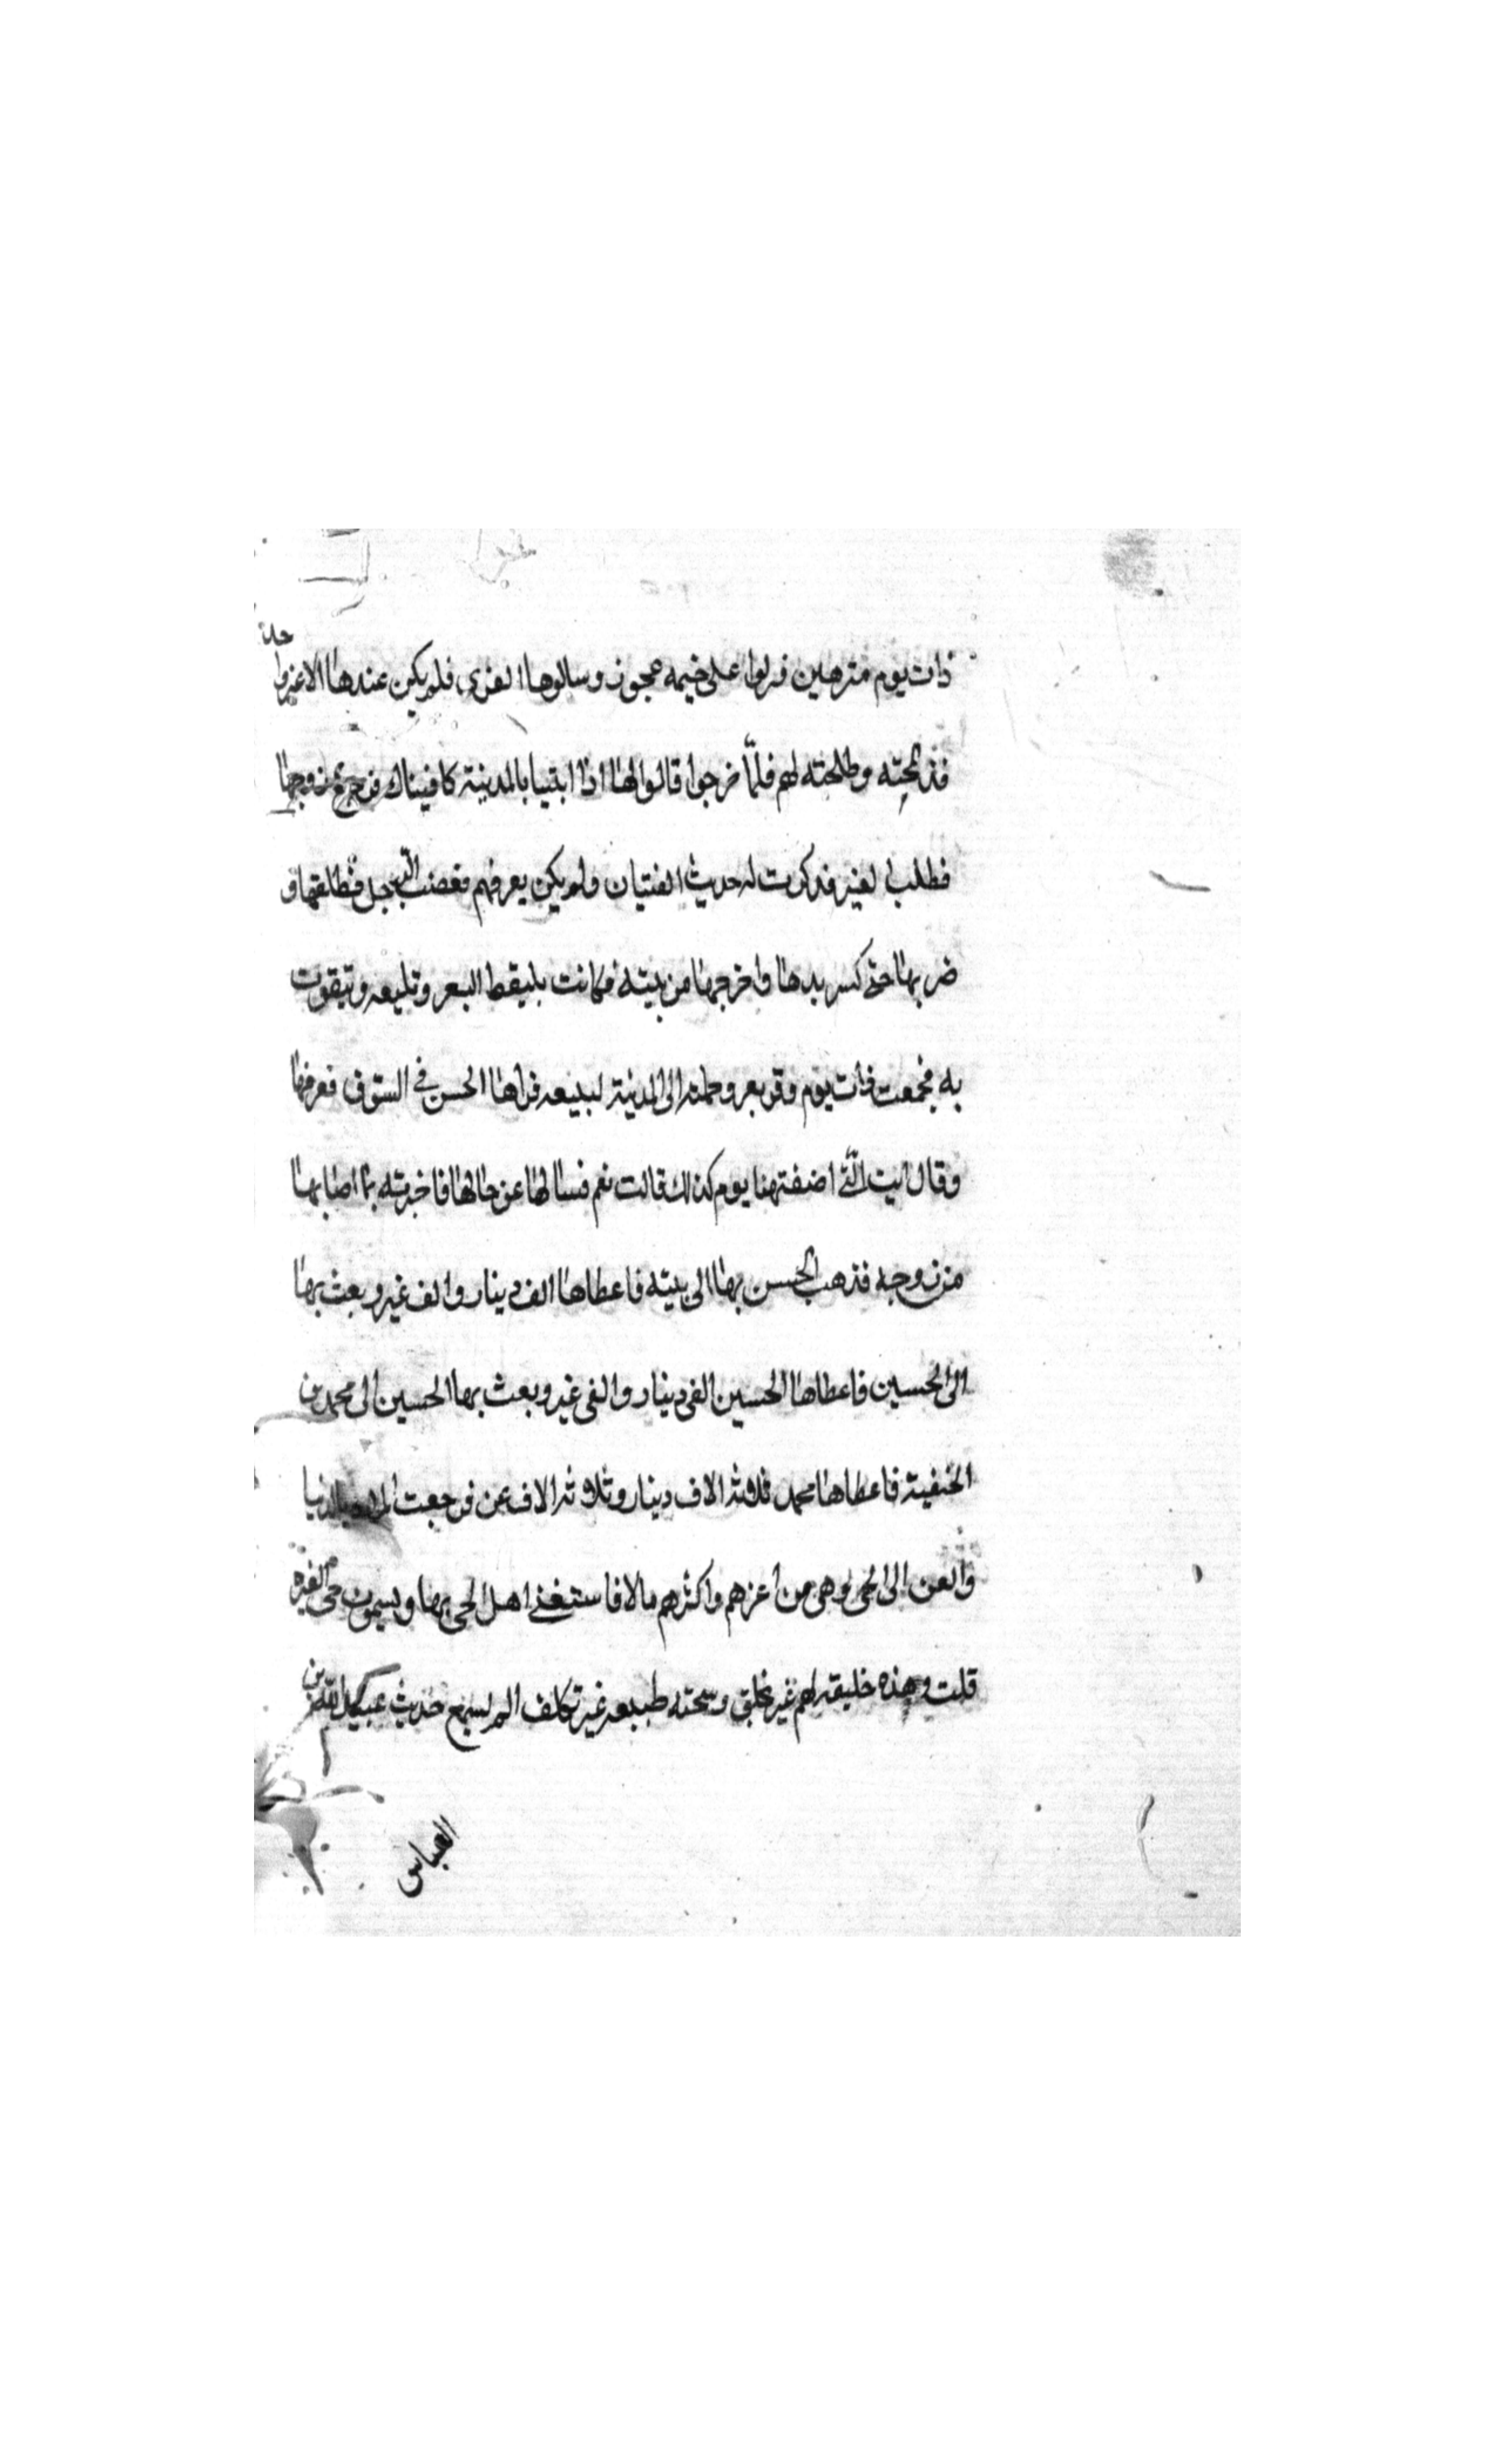 ذات يوم متزهين فنزلوا على خيمه عجوز وسالوها القرى فلم يكن عندها الا عنز واحدة
فذبحته وطبخته لهم فلمّا خرجوا قالوا لها اذا اتيتنا بالمدينة كافيناك فرجع زوجها
فطلب العنز فذكرت له حديث الفتيان ولم يكن يعرفهم فغضب الرجل فطلقها و
ضربها حتى كسر يدها واخرجها من بيته فكانت تلتقط البعر وتبيعه وتتقوت
به فجمعت ذات يوم وقر بعر وحملته الى المدينة لبيعه فراها الحسن في السوق فعرفها
وقال انت الّتي اضفتنا يوم كذا قالت نعم فسالها عن حالها فاخبرته بما اصابها
من زوجه فذهب الحسن بها الى بيته فاعطاها الف دينار والف عنز وبعث بها
الى الحسين فاعطاها الحسين الفى دينار والفى عنز وبعث بها الحسين الى محمد بن
الحنفية فاعطاها محمد ثلاثة الاف دينار وثلاثة الاف عنز فرجعت
والعنز الى الحى وهى من اعزهم واكثرهم مالا فاستغنى اهل الحى بها ويسمون حى العنز
قلت وهذه خليقة لهم غير تخلق وسجية طبيعة غير تكلف الم تسمع حديث عبيد الله بن
العباس